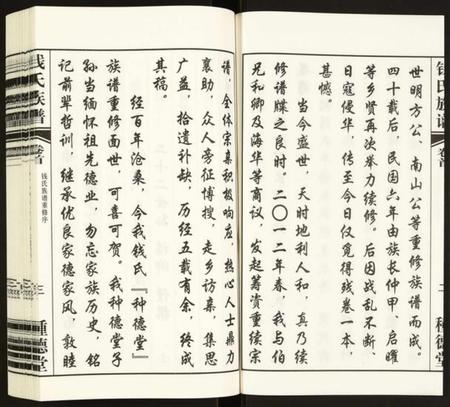 世明方公、南山公等重修族谱而成。
四十载后，民国六年由族长仲甲、启曜
等乡贤再次举力续修。后因战乱不断、
日寇侵华，传至今日仅觅得残卷一本，
甚憾。
当今盛世，天时地利人和，真乃续
修谱牒之良时。二〇一二年春，我与伯
兄和卿及海华等商议，发起筹资重续宗
谱，全体宗亲积极响应，热心人士鼎力
襄助，众人旁征博搜，走乡访亲，集思
广益，拾遗补缺，历经五载有余，终成
其稿。
经百年沧桑，今我钱氏『种德堂』
族谱重修面世，可喜可贺。我种德堂子
孙当缅怀祖先德业，勿忘家族历史，铭
记前辈哲训，继承优良家德家风，敦睦
钱氏族谱
卷首
二
种德堂
钱氏族谱
卷首
钱氏族谱重修序
三
種德堂